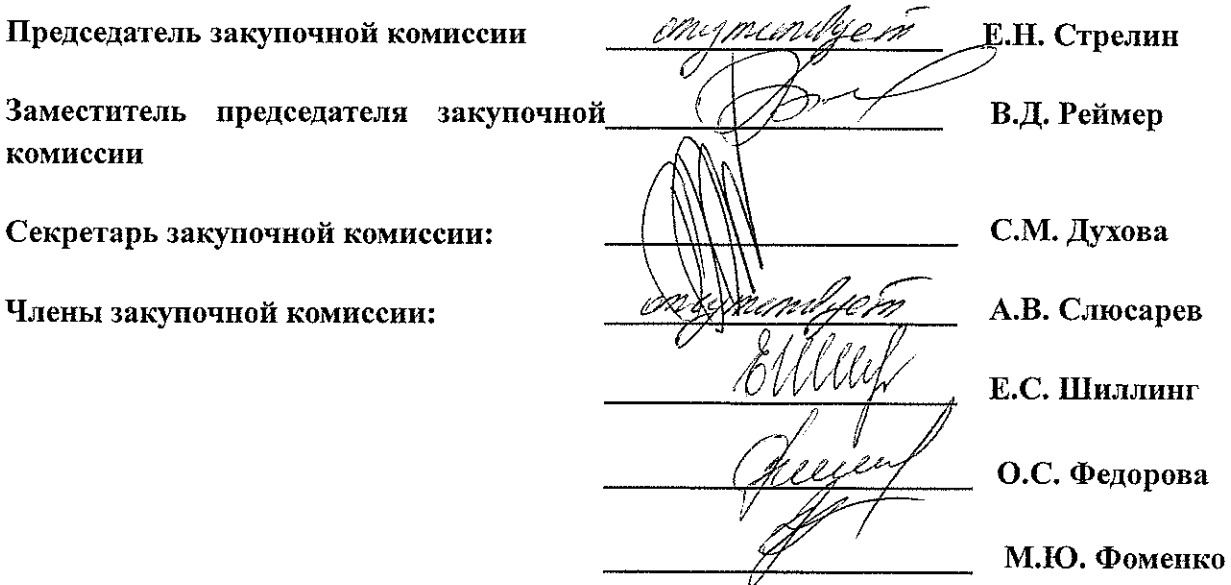 Председатель закупочной комиссии отсутствует Е.Н. Стрелин
Заместитель председателя закупочной В.Д. Реймер
комиссии
Секретарь закупочной комиссии: С.М. Духова
Члены закупочной комиссии: отсутствует А.В. Слюсарев
Е.С. Шиллинг
О.С. Федорова
М.Ю. Фоменко